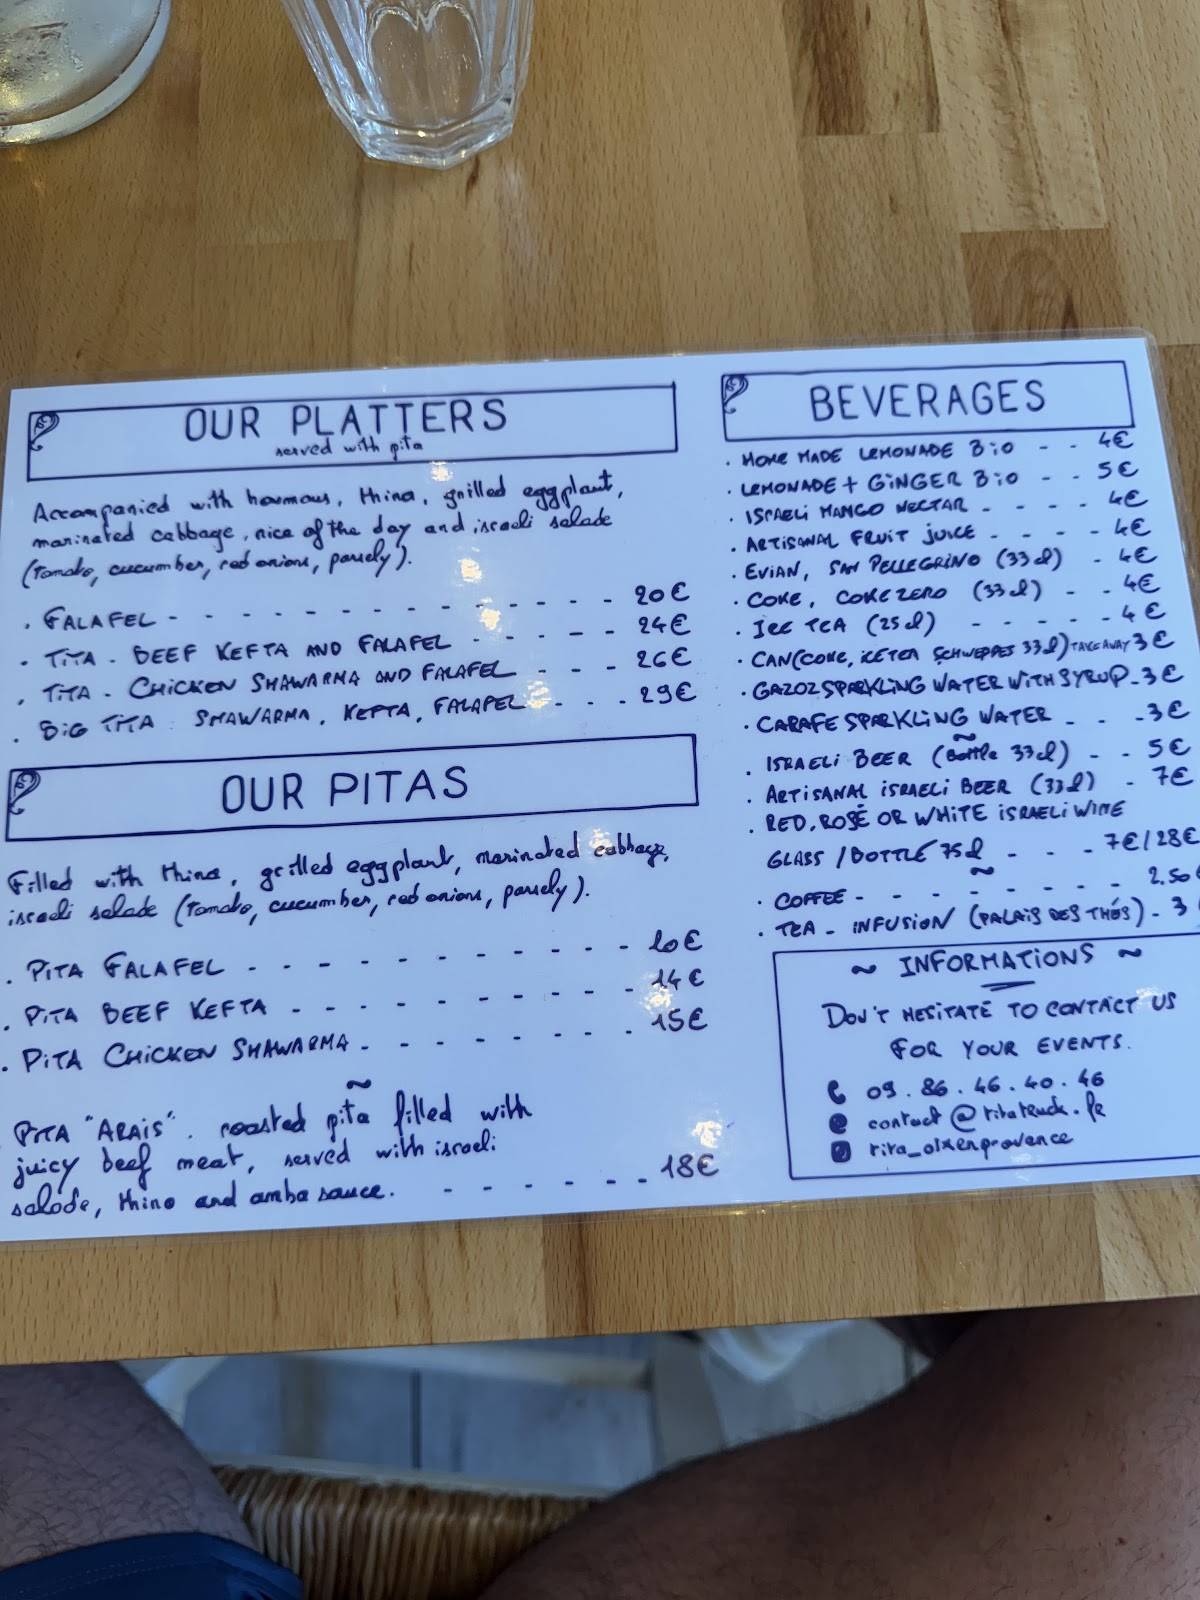 OUR PLATTERS
served with pita
Accompanied with houmous, thina, grilled eggplant,
marinated cabbage, rice of the day and israeli salade
(tomato, cucumber, red onions, parsely).
. FALAFEL - - - - - - - - - - - - - - 20€
. TITA - BEEF KEFTA AND FALAFEL - - - - - 24€
. TITA - CHICKEN SHAWARMA AND FALAFEL - - - 26€
. BIG TITA : SHAWARMA, KEFTA, FALAFEL - - - 29€
OUR PITAS
Filled with thina, grilled eggplant, marinated cabbage,
israeli salade (tomato, cucumber, red onions, parsely).
. PITA FALAFEL - - - - - - - - - - - 10€
. PITA BEEF KEFTA - - - - - - - - - - 14€
. PITA CHICKEN SHAWARMA - - - - - - - - 15€
~
PITA "ARAIS". roasted pita filled with
juicy beef meat, served with israeli
salade, thina and amba sauce. - - - - - - 18€
BEVERAGES
. HOME MADE LEMONADE BIO - - 4€
. LEMONADE + GINGER BIO - - 5€
. ISRAELI MANGO NECTAR - - - - 4€
. ARTISANAL FRUIT JUICE - - - - 4€
. EVIAN, SAN PELLEGRINO (33cl) - 4€
. COKE, COKE ZERO (33cl) - - 4€
. ICE TEA (25cl) - - - - - 4€
. CAN (COKE, ICETEA SCHWEPPES 33cl) TAKE AWAY 3€
. GAZOZ SPARKLING WATER WITH SYRUP - 3€
. CARAFE SPARKLING WATER - - - 3€
~
. ISRAELI BEER (Bottle 33cl) - - 5€
. ARTISANAL ISRAELI BEER (33cl) - 7€
. RED, ROSÉ OR WHITE ISRAELI WINE
GLASS / BOTTLE 75cl - - - 7€/28€
~
. COFFEE - - - - - - - - 2.50€
. TEA - INFUSION (PALAIS DES THÉS) - 3
~ INFORMATIONS ~
DON'T HESITATE TO CONTACT US
FOR YOUR EVENTS.
09.86.46.40.46
contact@ritatruck.fr
rita_aixenprovence